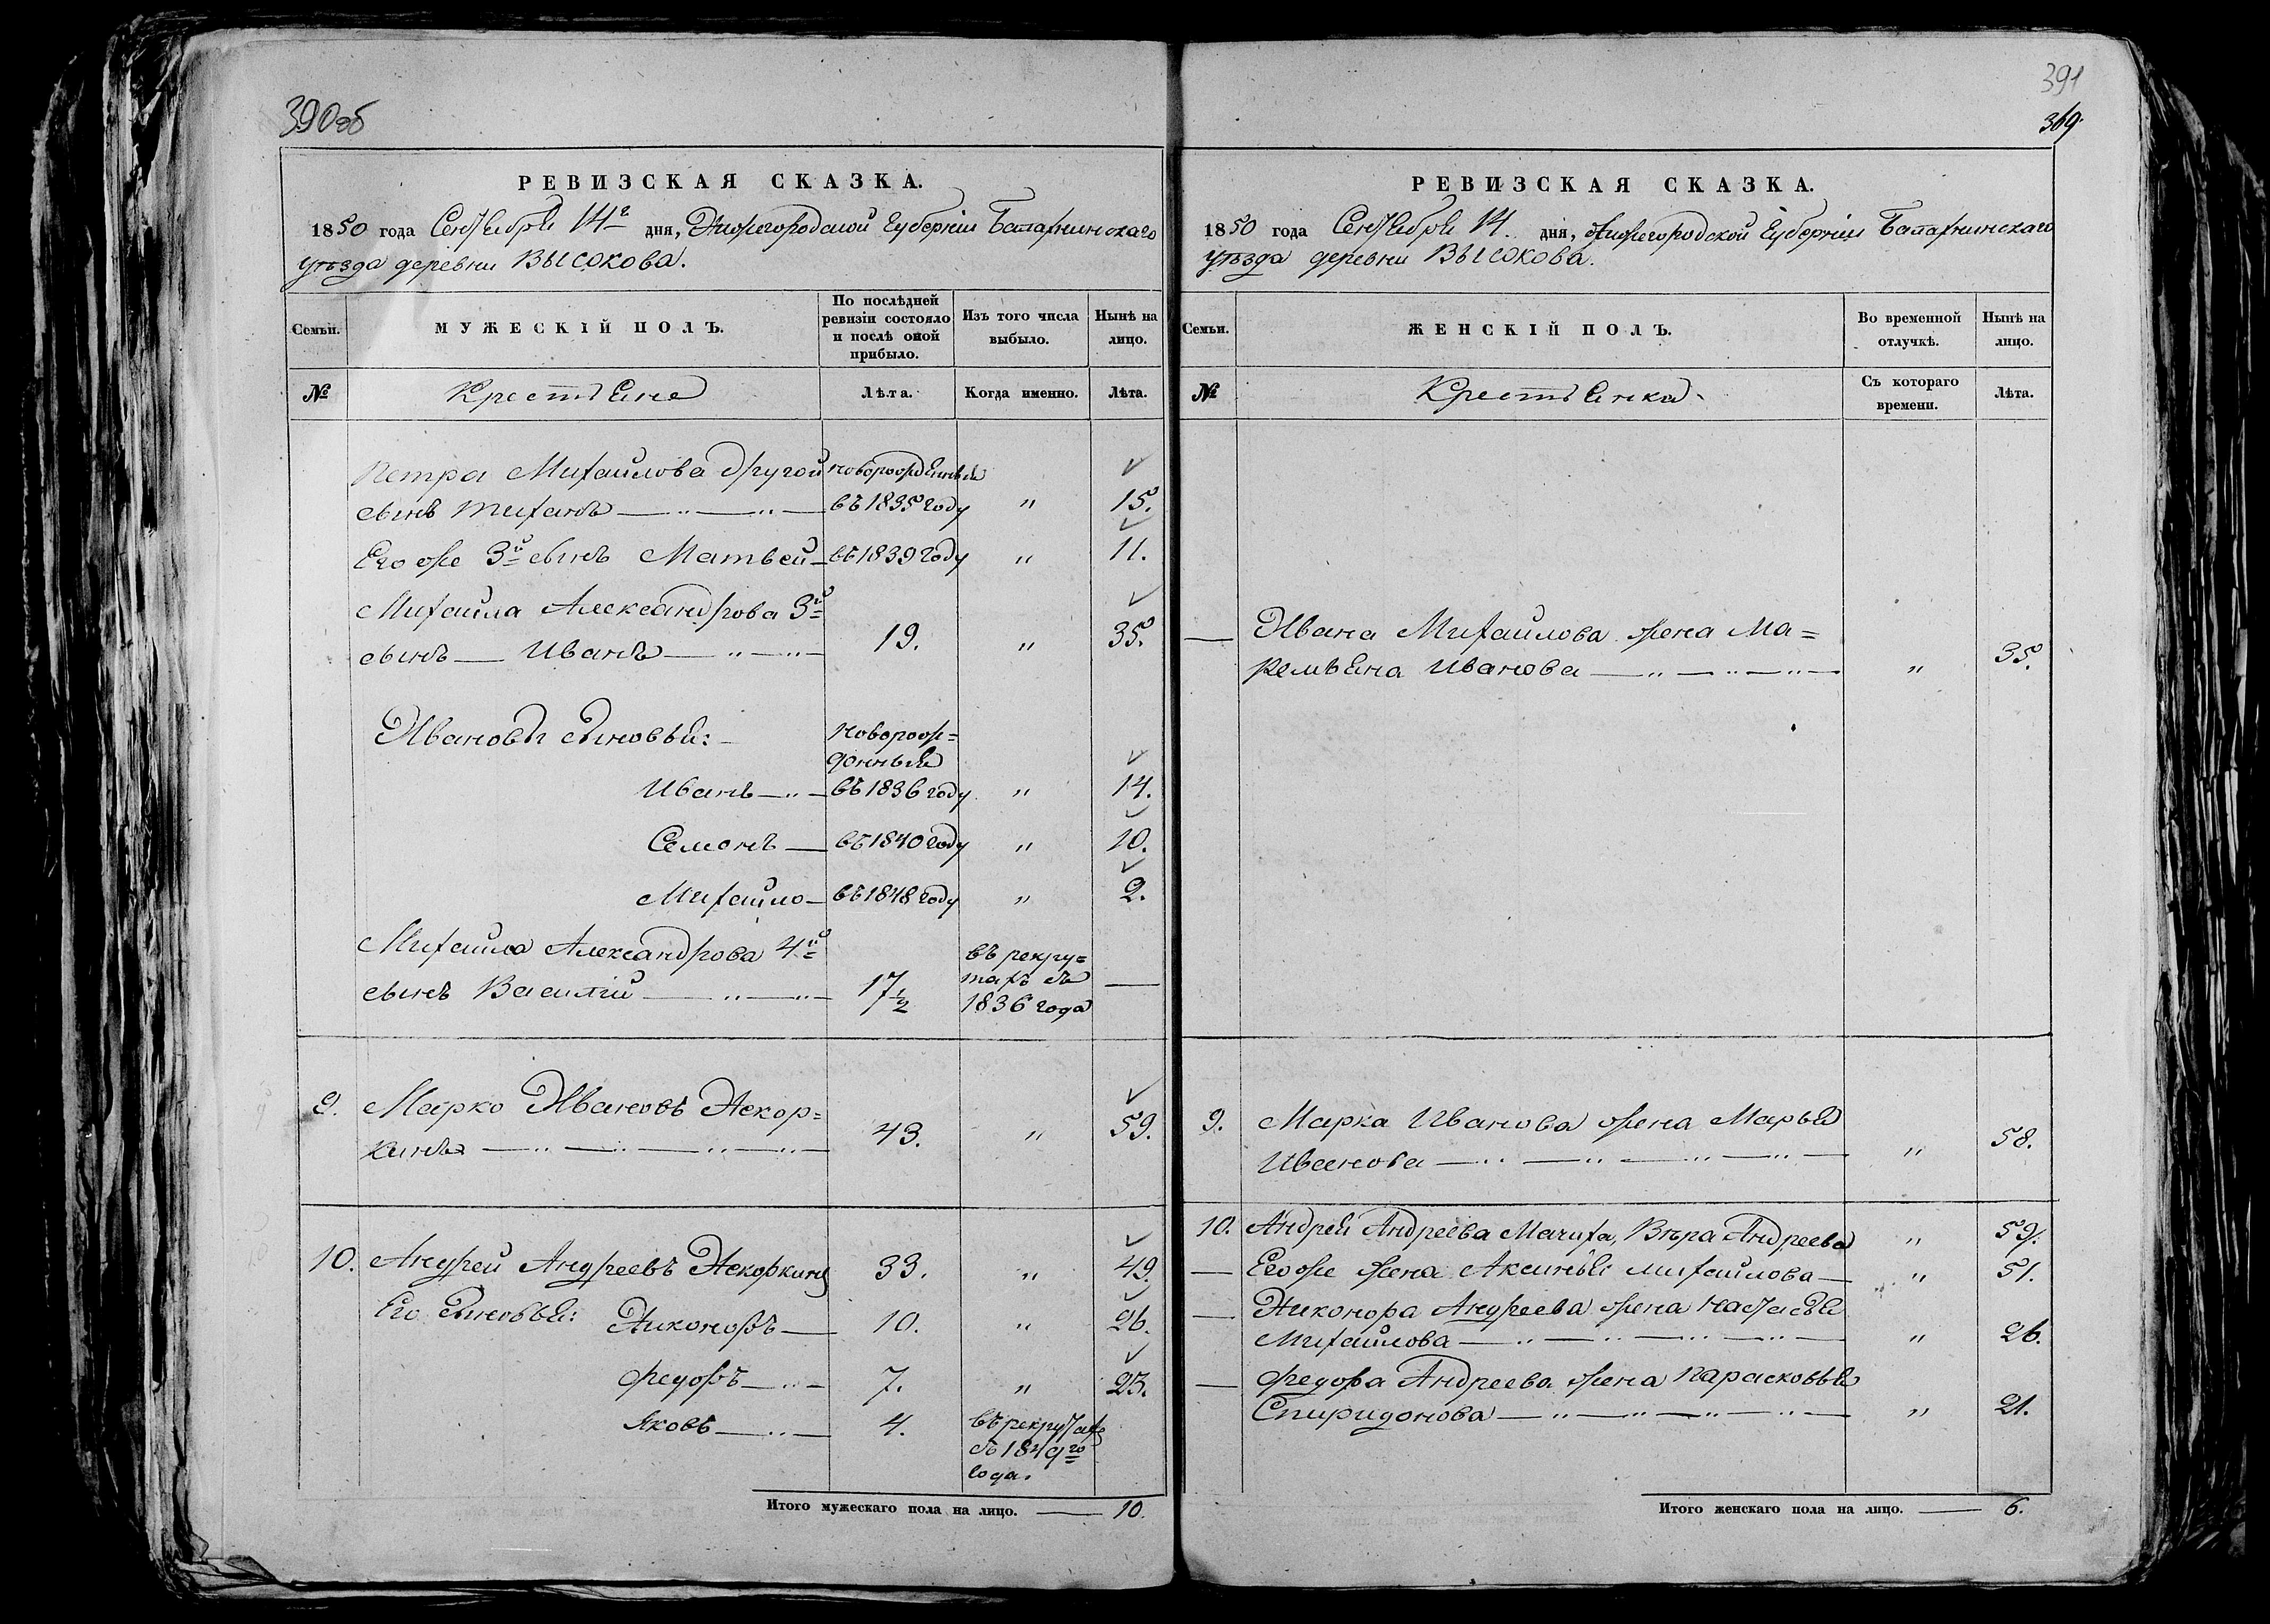 390об
РЕВИЗСКАЯ СКАЗКА.
1850 года Сентября 14го дня, Нижегородской Губернiи Балахнинскаго
уѣзда деревни Высокова.
Семьи.
МУЖЕСКIЙ ПОЛЪ.
По послѣдней ревизiи состояло и послѣ оной прибыло.
Изъ того числа выбыло.
Нынѣ на лицо.
№ Крестьяне Лѣта. Когда именно. Лѣта.
Петра Михайлова другой новорожденный
сынъ Тиханъ въ 1835 году " 15.
Его же 3й сынъ Матвей въ 1839 году " 11.
Михайла Александрова 3й
сынъ Иванъ 19. " 35.
Ивановы сыновья: новорож=
денныя
Иванъ въ 1836 году " 14.
Семонъ въ 1840 году " 10.
Михайло въ 1848 году " 2.
Михайла Александрова 4й въ рекру=
сынъ Василiй 17 1/2 тахъ съ
1836 года
9. Марко Ивановъ Некор=
кинъ 43. " 59.
10. Андрей Андреевъ Некоркинъ 33. " 49.
Его сыновья: Никоноръ 10. " 26.
Федоръ 7. " 23.
Яковъ 4. въ рекрутахъ
съ 1849го
года.
Итого мужескаго пола на лицо. 10.
391
369.
РЕВИЗСКАЯ СКАЗКА.
1850 года Сентября 14. дня, Нижегородской Губернiи Балахнинскаго
уѣзда деревни Высокова.
Семьи.
ЖЕНСКIЙ ПОЛЪ.
Во временной отлучкѣ.
Нынѣ на лицо.
№ Крестьянка. Съ котораго времени. Лѣта.
Ивана Михайлова жена Ма=
ремьяна Иванова " 35.
9. Марка Иванова жена Марья
Иванова " 58.
10. Андрей Андреева Мачиха, Вѣра Андреева " 59.
Его же жена Аксинья Михайлова " 51.
Никонора Андреева жена Настасья
Михайлова " 26.
Федора Андреева жена Парасковья
Спиридонова " 21.
Итого женскаго пола на лицо. 6.